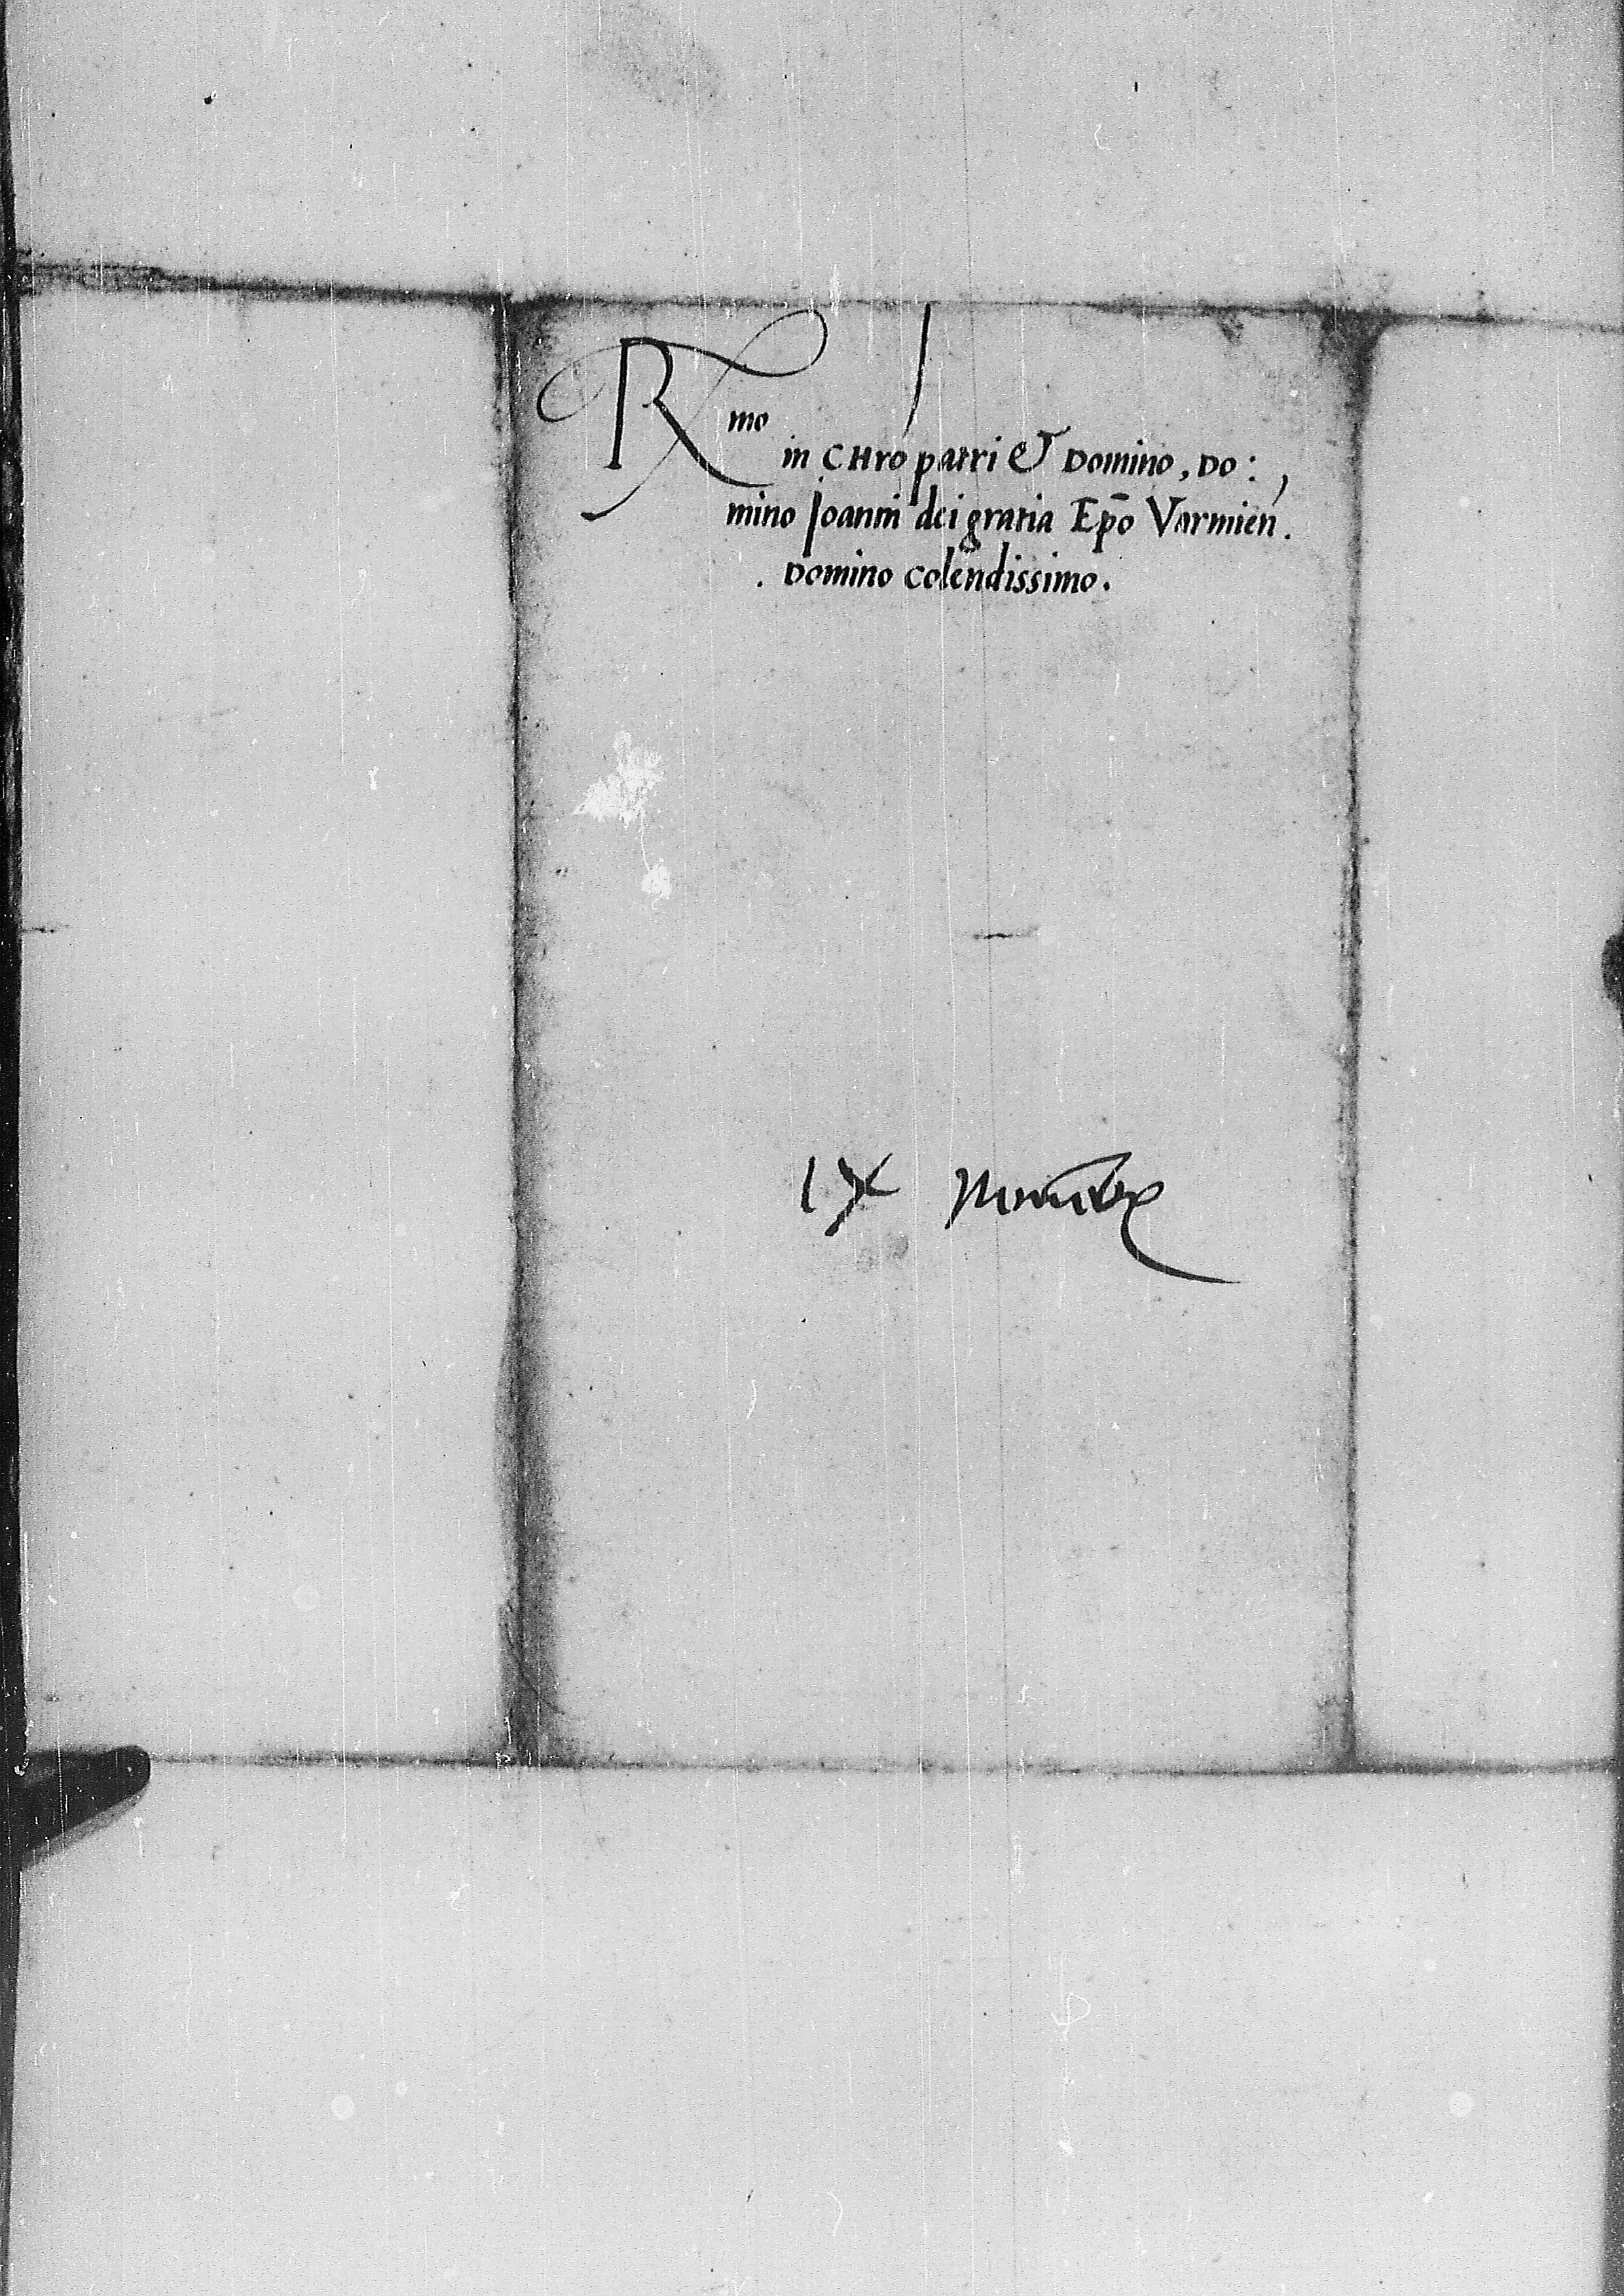 Rmo
in CHro patri & Domino, Do:
mino Joanni dei gratia Epo Varmien.
. Domino colendissimo.
IX Novembr